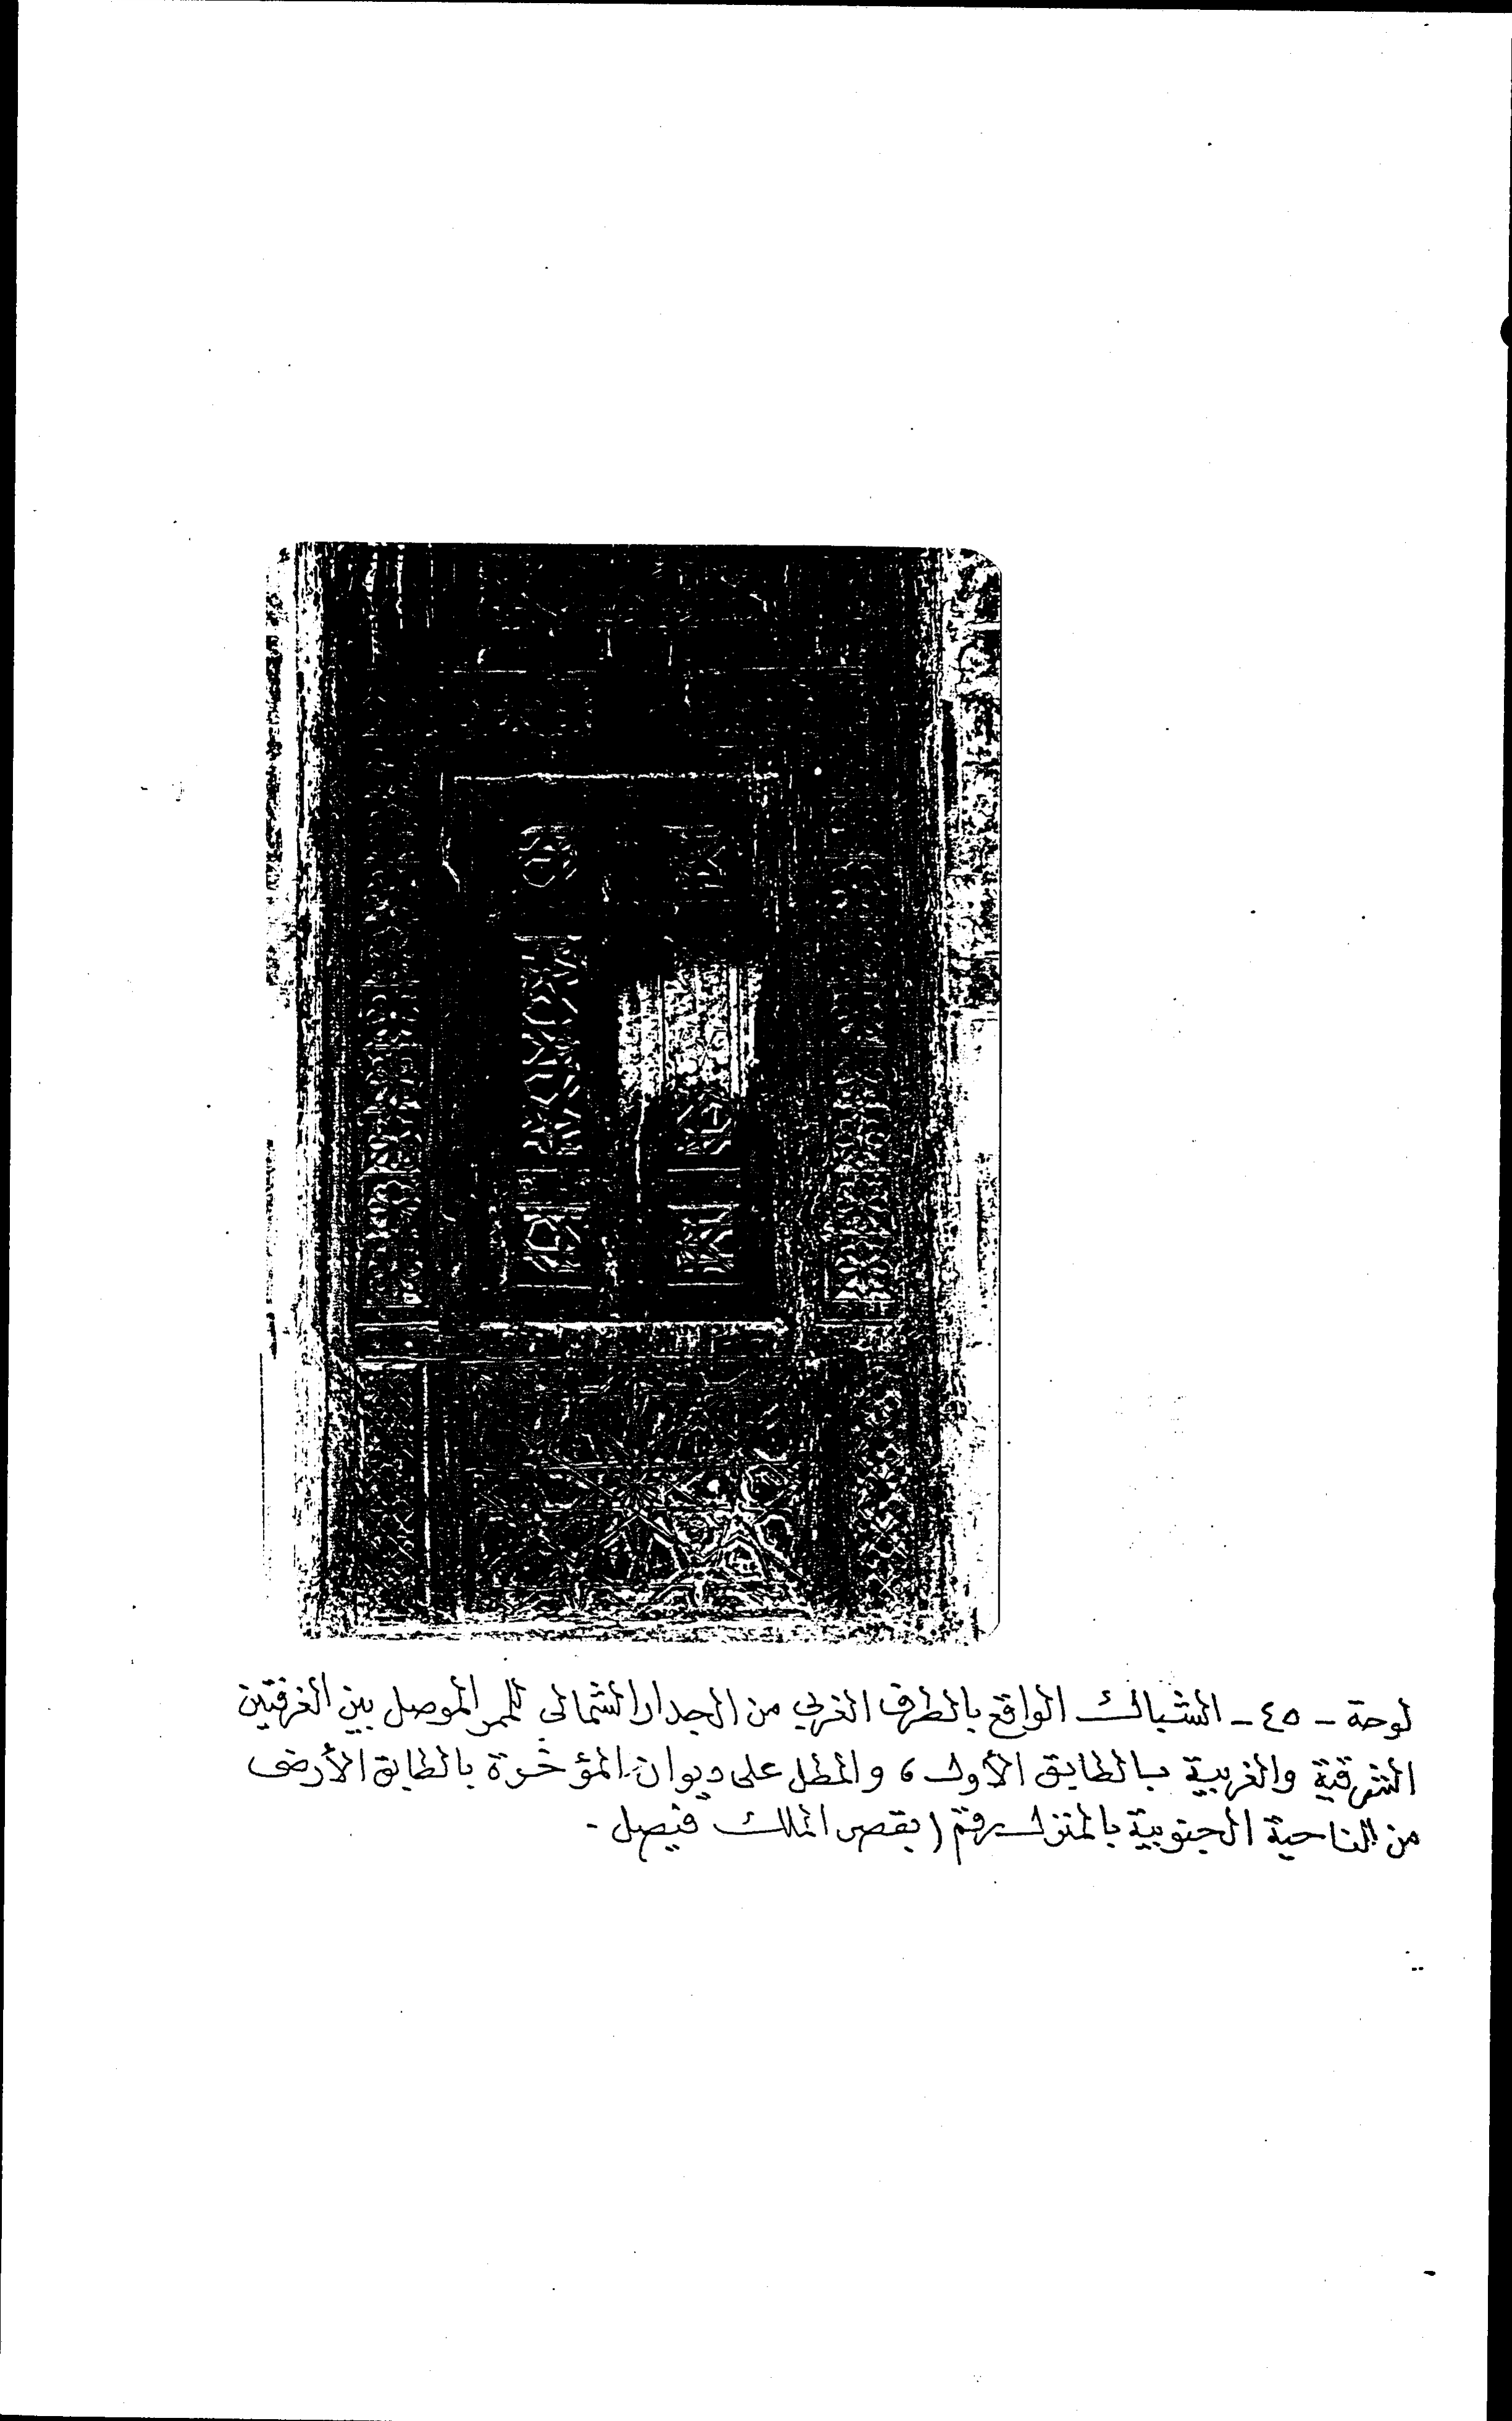 لوحة - ٤٥ - الشباك الواقع بالطرف الغربي من الجدار الشمالى للممر الموصل بين الغرفتين
الشرقية والغربية بالطابق الأول ، والمطل على ديوان المؤخرة بالطابق الأرضى
من الناحية الجنوبية بالمنزل رقم ١ بقصر الملك فيصل -